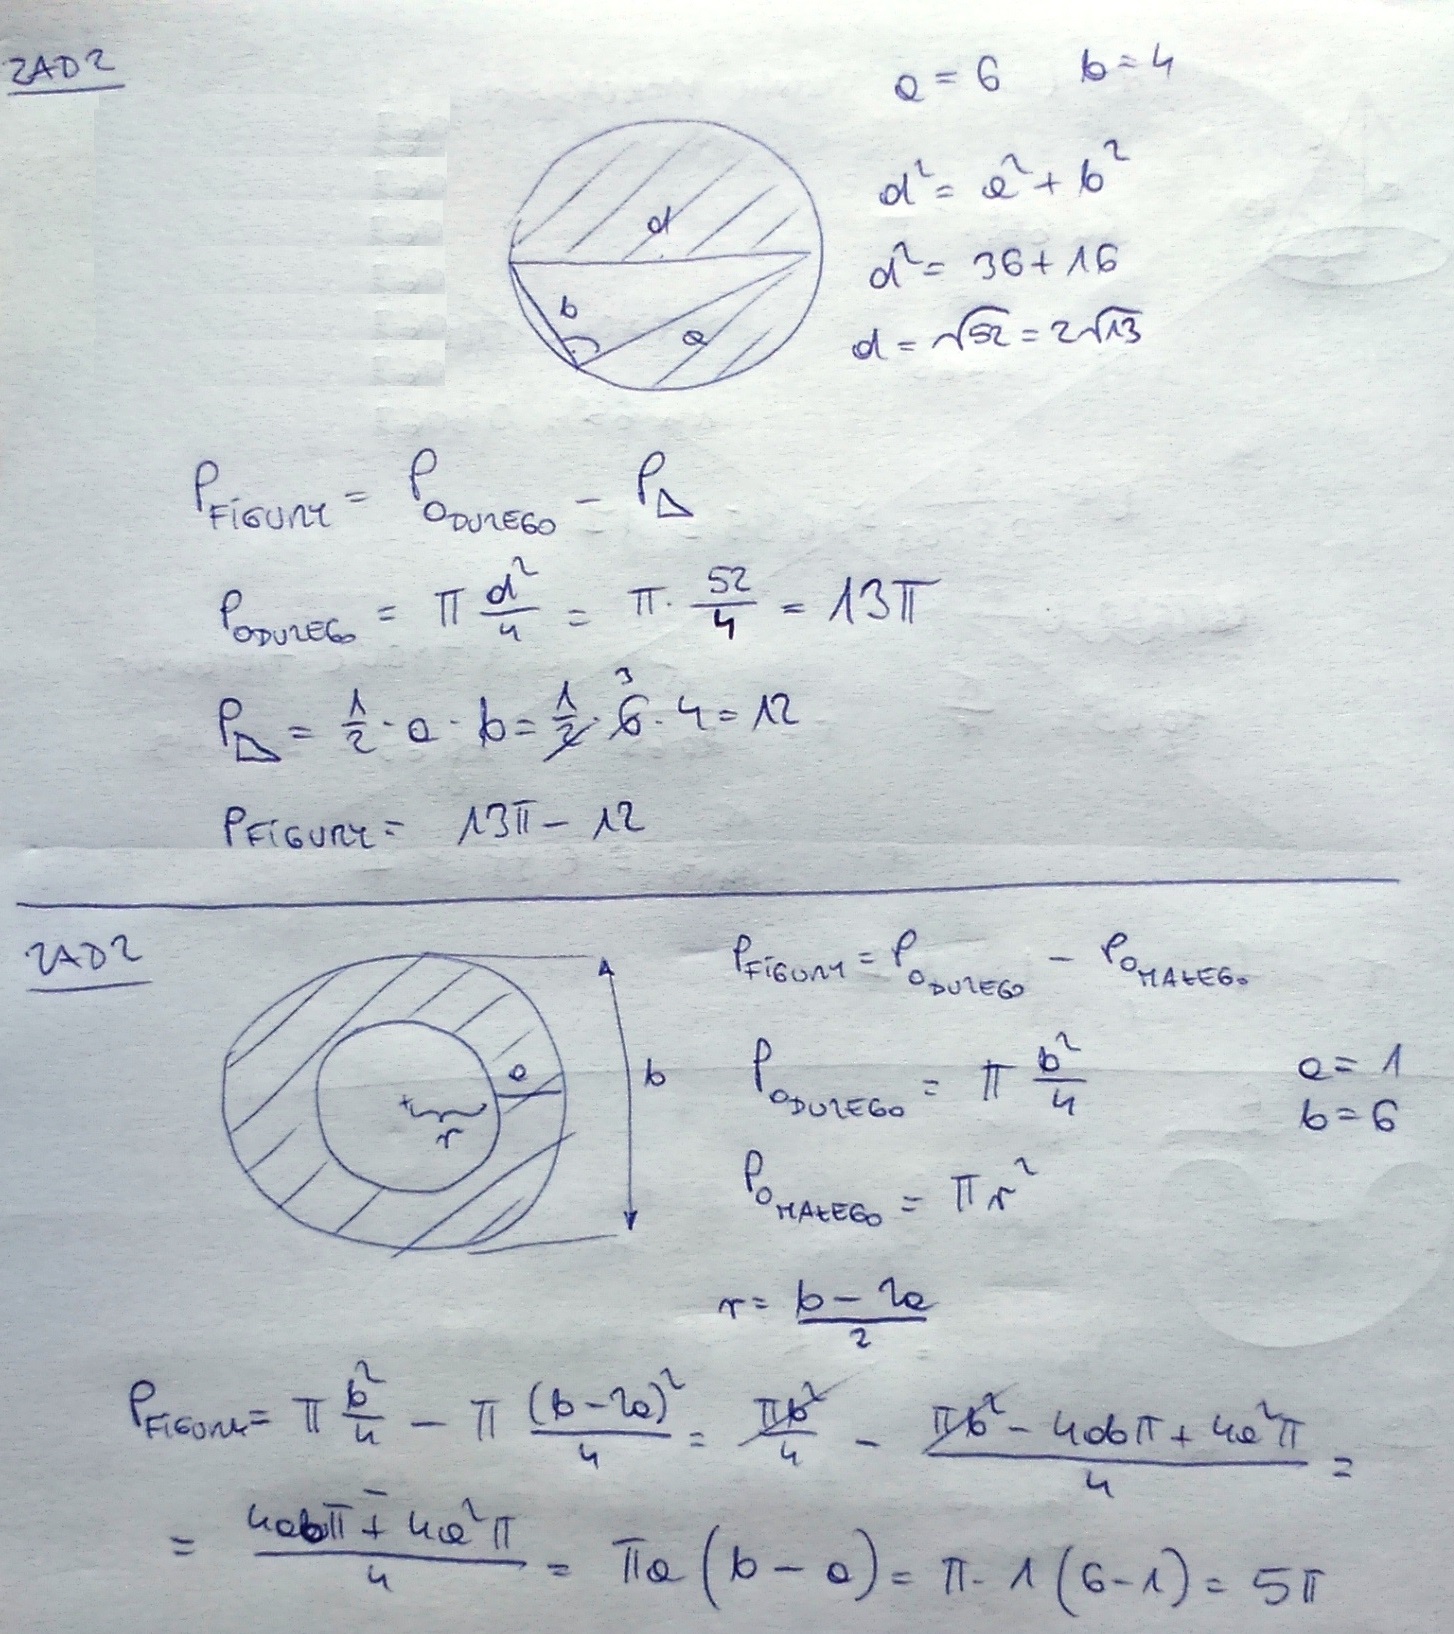 ZAD2
a = 6 b = 4
d² = a² + b²
d
d² = 36 + 16
b
a
d = √52 = 2√13
P FIGURY = P O DUŻEGO - P△
P O DUŻEGO = π d²/4 = π · 52/4 = 13π
P△ = 1/2 · a · b = 1/2 · 6 3 · 4 = 12
P FIGURY = 13π - 12
ZAD2
P FIGURY = P O DUZEGO - P O MAŁEGO
a
b
r
P O DUZEGO = π b²/4
a = 1
b = 6
P O MAŁEGO = πr²
r = (b - 2a)/2
P FIGURY = π b²/4 - π (b-2a)²/4 = πb²/4 - (πb² - 4abπ + 4a²π)/4 =
= (4abπ - 4a²π)/4 = πa(b - a) = π · 1(6-1) = 5π